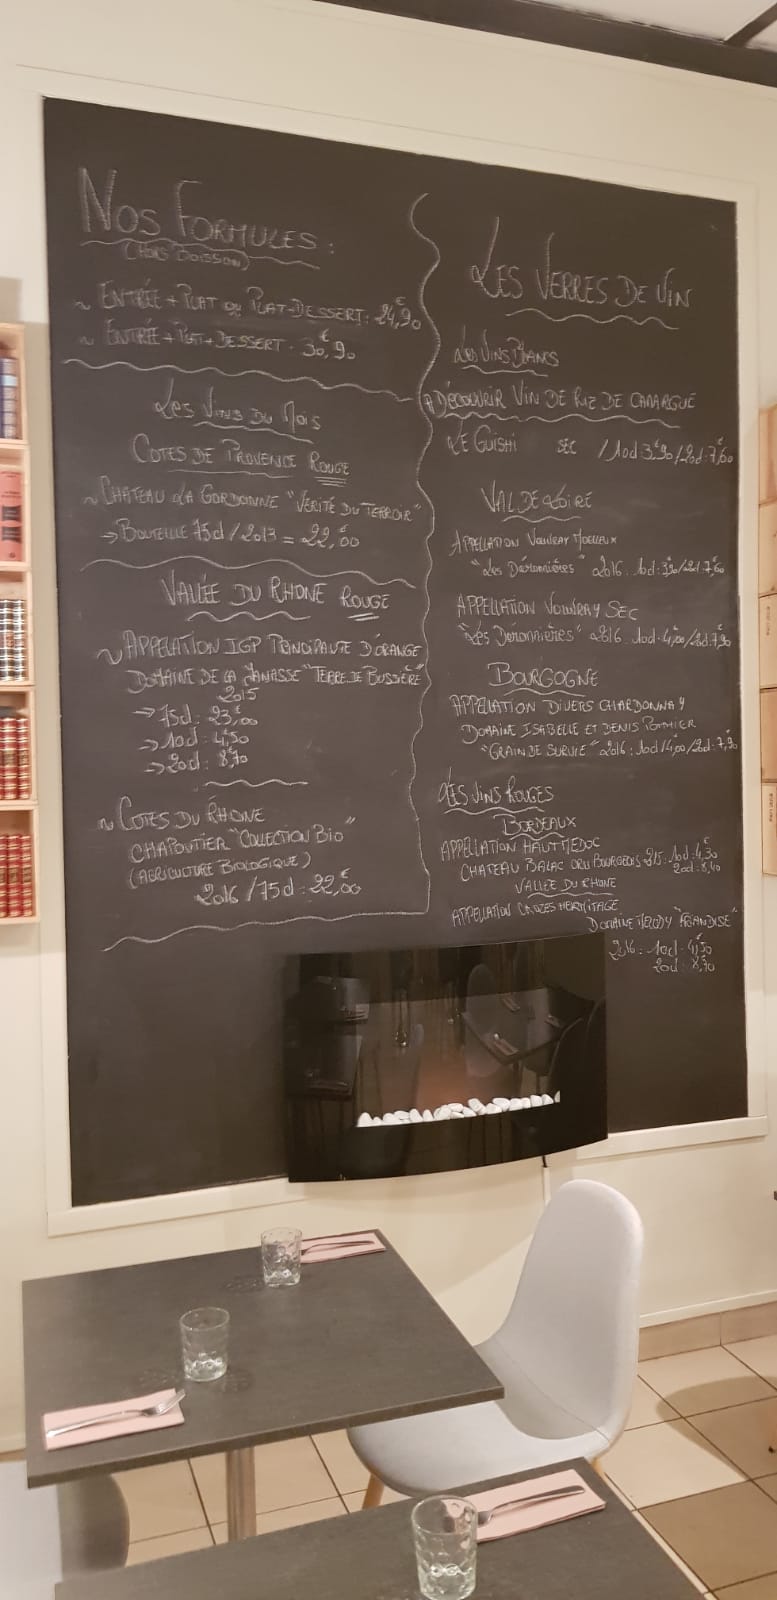 Nos Formules :
(Hors Boisson)
~ Entrée + Plat ou Plat-Dessert : 24,€90
~ Entrée + Plat + Dessert : 30,€90
Les Vins du Mois
Cotes de Provence Rouge
~ Chateau La Gordonne "Verité du Terroir"
→ Bouteille 75cl / 2013 = 22,€00
Vallée du Rhone Rouge
~ Appelation IGP Principaute d'Orange
Domaine de la Janasse "Terre de Bussière"
2015
→ 75cl : 23,€00
→ 10cl : 4,€50
→ 20cl : 8,€70
~ Cotes du Rhone
Chapoutier "Collection Bio"
(Agriculture Biologique)
2016 / 75cl : 22,€00
Les Verres de Vin
Les Vins Blancs
A Découvrir Vin de Riz de Camargue
Le Guishi Sec / 10cl : 3,€90 / 20cl : 7,€60
Val de Loire
Appellation Vouvray Moelleux
"Les Déronnières" 2016 : 10cl : 3,€90 / 20cl : 7,€60
Appellation Vouvray Sec
"Les Déronnières" 2016 : 10cl : 4,€00 / 20cl : 7,€90
Bourgogne
Appellation Divers Chardonnay
Domaine Isabelle et Denis Pommier
"Grain de Survie" 2016 : 10cl / 4,€00 / 20cl : 7,€90
Les Vins Rouges
Bordeaux
Appellation Haut Medoc
Chateau Balac Cru Bourgeois 10cl : 4,€30
20cl : 8,€40
Vallée du Rhone
Appellation Crozes Hermitage
Domaine Melody
2016 : 10cl : 4,€50
20cl : 8,€70